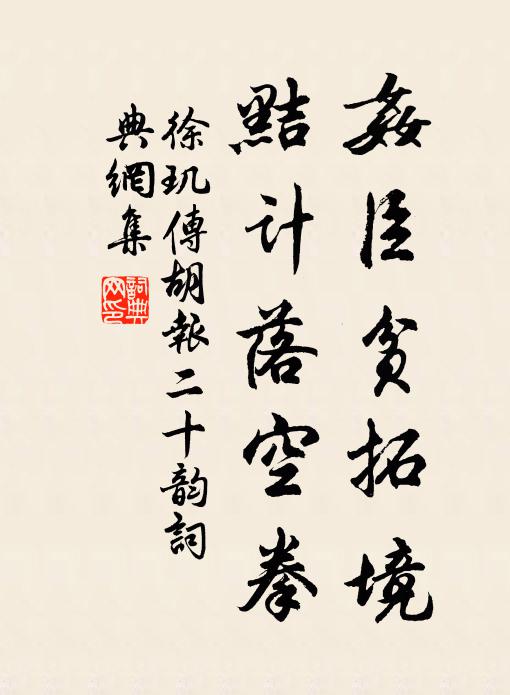 姦臣貪拓境
黠計落空拳
徐玑傳胡報二十韵詞
典網集
詞典
网印